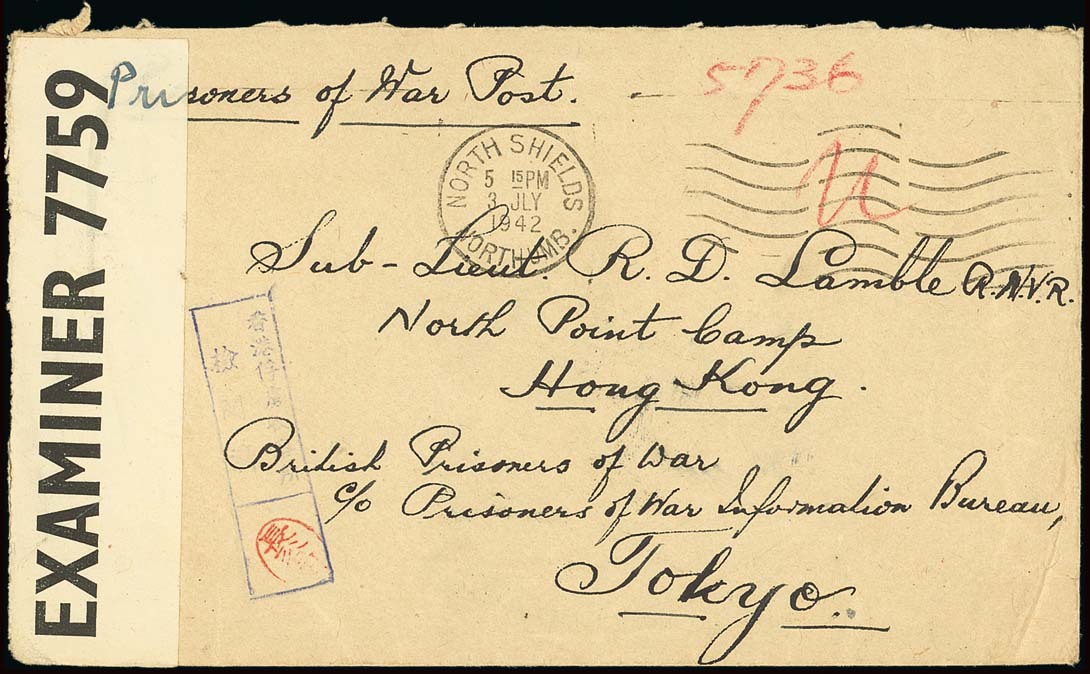 EXAMINER 7759
Prisoners of War Post.
5736
U
NORTH SHIELDS
5 15PM
3 JLY
1942
NORTHUMB.
Sub-Lieut R. D. Lamble R.N.V.R.
North Point Camp
Hong Kong.
香港俘
檢
British Prisoners of War
c/o Prisoners of War Information Bureau,
Tokyo.